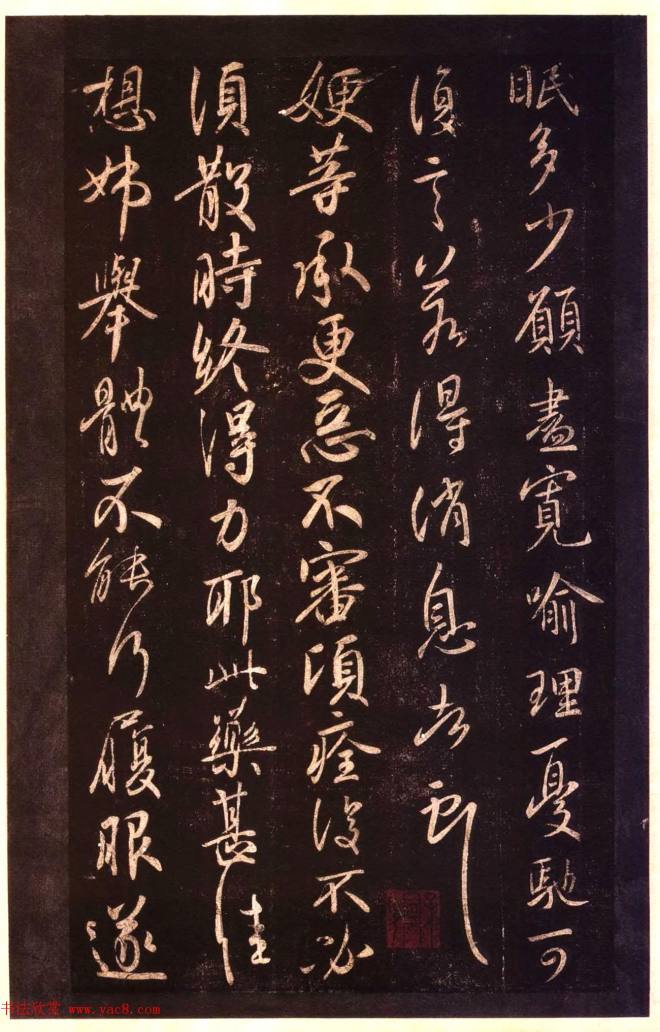 眠多少願盡寬喻理憂馳可
復言若得消息
嫂等承更惡不審頃痊復不必
須散時終得力耶此藥甚佳
想姊舉體不能行履眼遂
书法欣赏 www.yac8.com